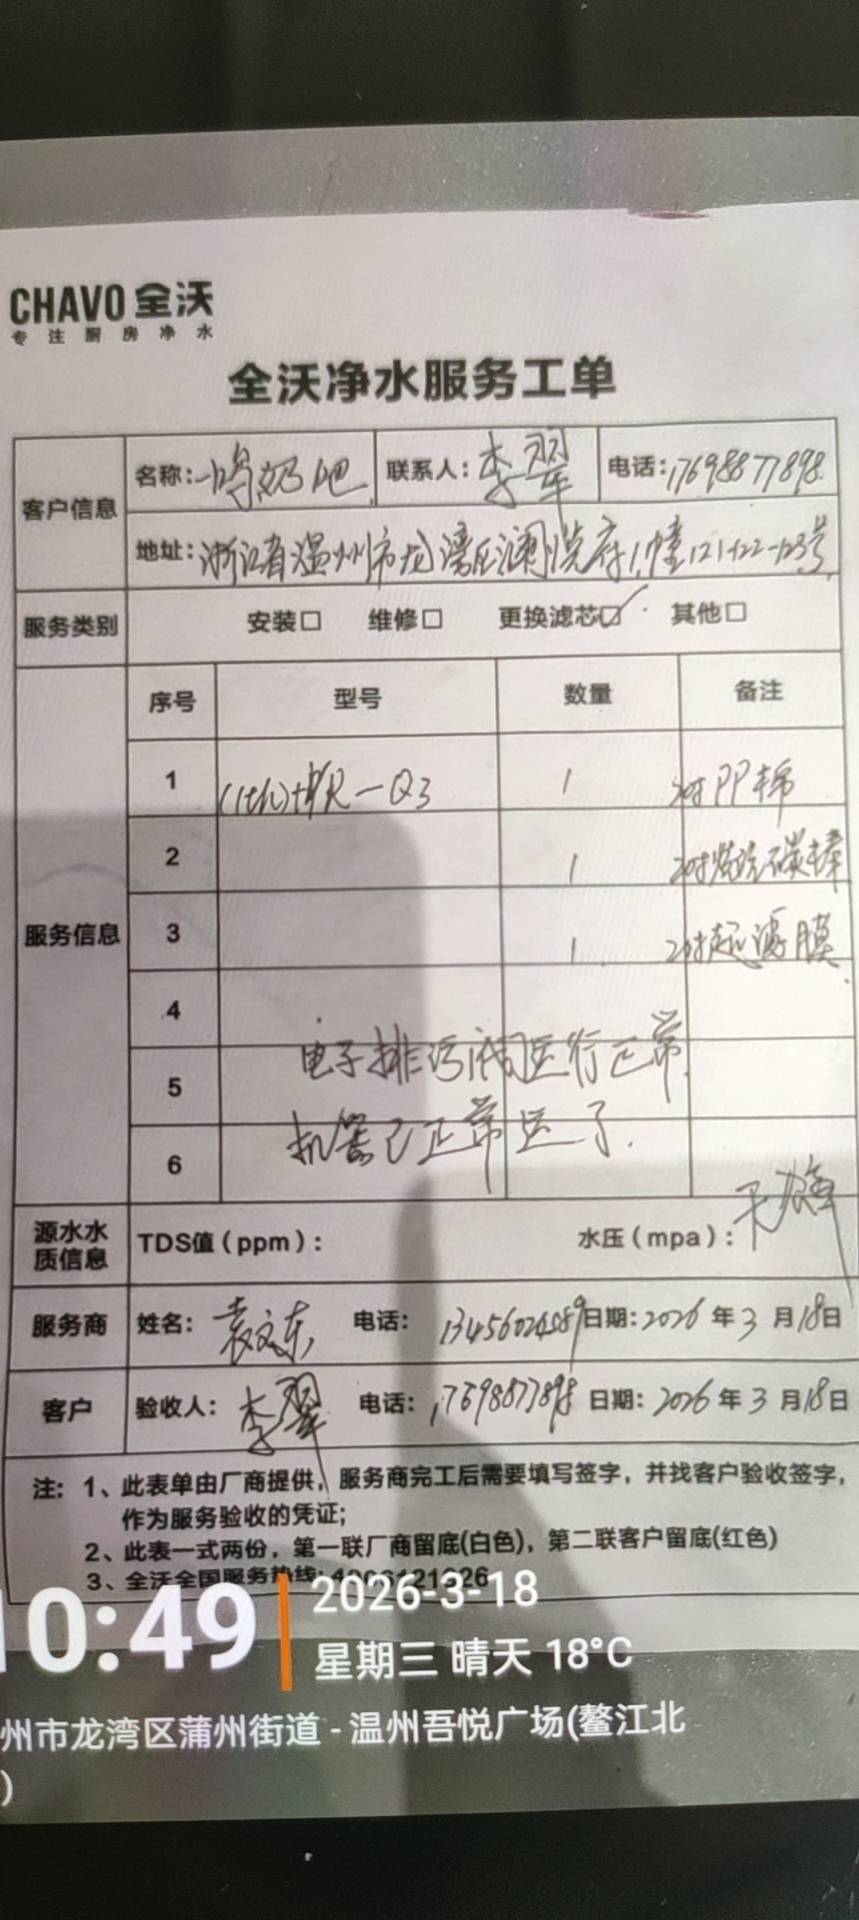 CHAVO 全沃
专注厨房净水
全沃净水服务工单
客户信息 名称：一鸣奶吧 联系人：李翠 电话：17698877898
地址：浙江省温州市龙湾区澜悦府1幢121-122-123号
服务类别 安装□ 维修□ 更换滤芯☑ 其他□
服务信息 序号 型号 数量 备注
1 -Q3 1 20寸PP棉
2 1 20寸烧结碳棒
3 1 20寸超滤膜
4
电子排污阀运行正常
5
机器已正常运了.
6
源水水质信息 TDS值（ppm）： 水压（mpa）：
服务商 姓名：袁文东 电话：13456024589 日期：2026年3月18日
客户 验收人：李翠 电话：17698877898 日期：2026年3月18日
注：1、此表单由厂商提供，服务商完工后需要填写签字，并找客户验收签字，
作为服务验收的凭证；
2、此表一式两份，第一联厂商留底(白色)，第二联客户留底(红色)
3、全沃全国服务热线：
10:49 2026-3-18
星期三 晴天 18°C
州市龙湾区蒲州街道 - 温州吾悦广场(鳌江北
)